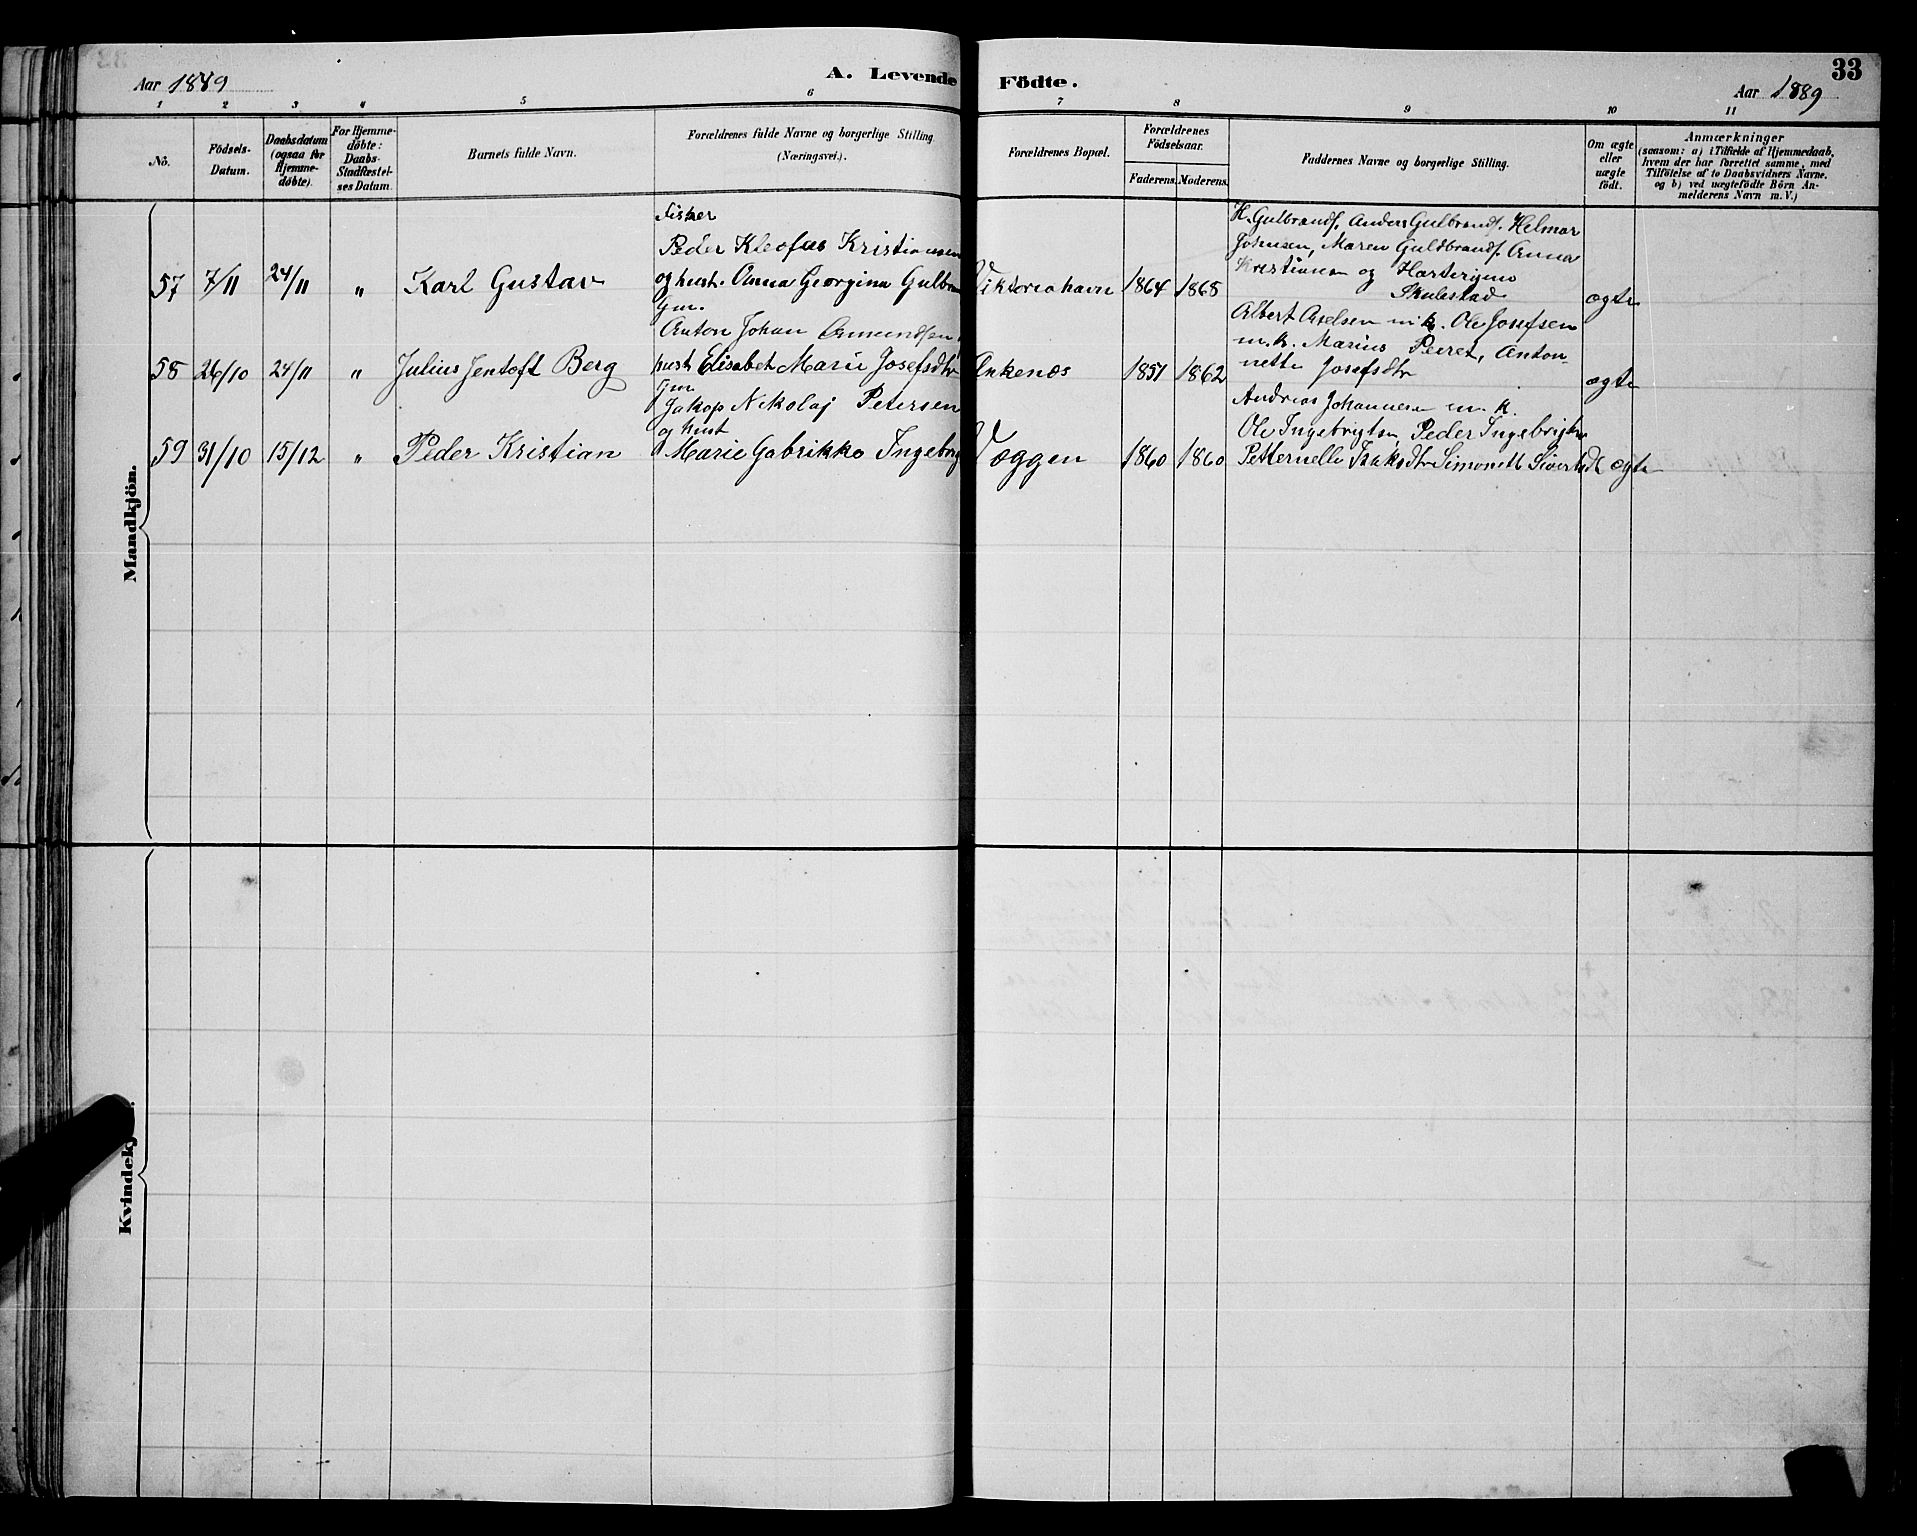 Aar 1889
A. Levende
Födte.
33
Aar 1889
1 2 3 4 5 6 7 8 9 10 11
No.
Födsels-
Datum.
Daabsdatum
(ogsaa for
Hjemme-
döbte).
For Hjemme-
döbte:
Daabs-
Stadfæstel-
ses Datum.
Barnets fulde Navn.
Forældrenes fulde Navne og borgerlige Stilling
(Næringsvei).
Forældrenes Bopæl.
Forældrenes
Födselsaar.
Faderens. Moderens.
Faddernes Navne og borgerlige Stilling.
Om ægte
eller
uægte
födt.
Anmærkninger
(saasom: a) i Tilfælde af Hjemmedaab,
hvem der har forrettet samme, med
Tilföielse af to Daabsvidners Navne.
og b) ved uægtefödte Börn An-
melderens Navn m. V.)
Mandkjön.
57 7/11 24/11 " Karl Gustav
Fisker
Peder Kleofas Kristiansen
og hust. Anna Georgina Gulbra
Viktoriahavn 1864 1868
H. Gulbrands. Anders Gulbrands. Helmar
Johnsen, Maren Guldbrands. Anna
Kristiansen og
Skulestad
ægte
58 26/10 24/11 " Julius Jentoft Berg
Gm.
Anton Johan Amundsen,
hust Elisabet Marie Josefsdtr
Ankenæs 1851 1862
Albert Axelsen m. k. Ole Josefsen
m. k. Marius Peiret, Anton-
nette Josefsdtr
ægte
59 31/10 15/12 " Peder Kristian
Gm
Jakop Nikolaj Petersen
og hust
Marie Gabrikke Ingeborg
Væggen 1860 1860
Andreas Johannesen m. k.
Ole Ingebrigtsen, Peder Ingebrigtsen
Petternelle Isaksdtr Simonette Sivertsdt
ægte
Kvindekj